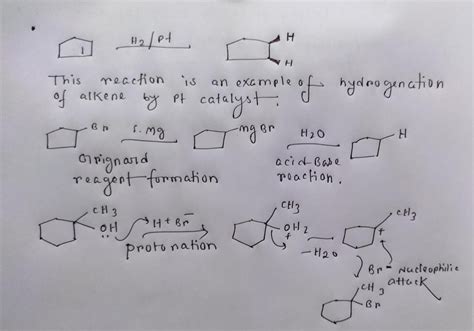 H2/pt
H
H
This reaction is an example of hydrogenation
of alkene by pt catalyst.
Br 1. mg mgBr H2O H
Grignard
reagent formation
acid Base
reaction.
CH3 CH3 CH3
OH H+Br- OH2 +
protonation + -H2O
Br- Nucleophilic
attack
CH3
Br